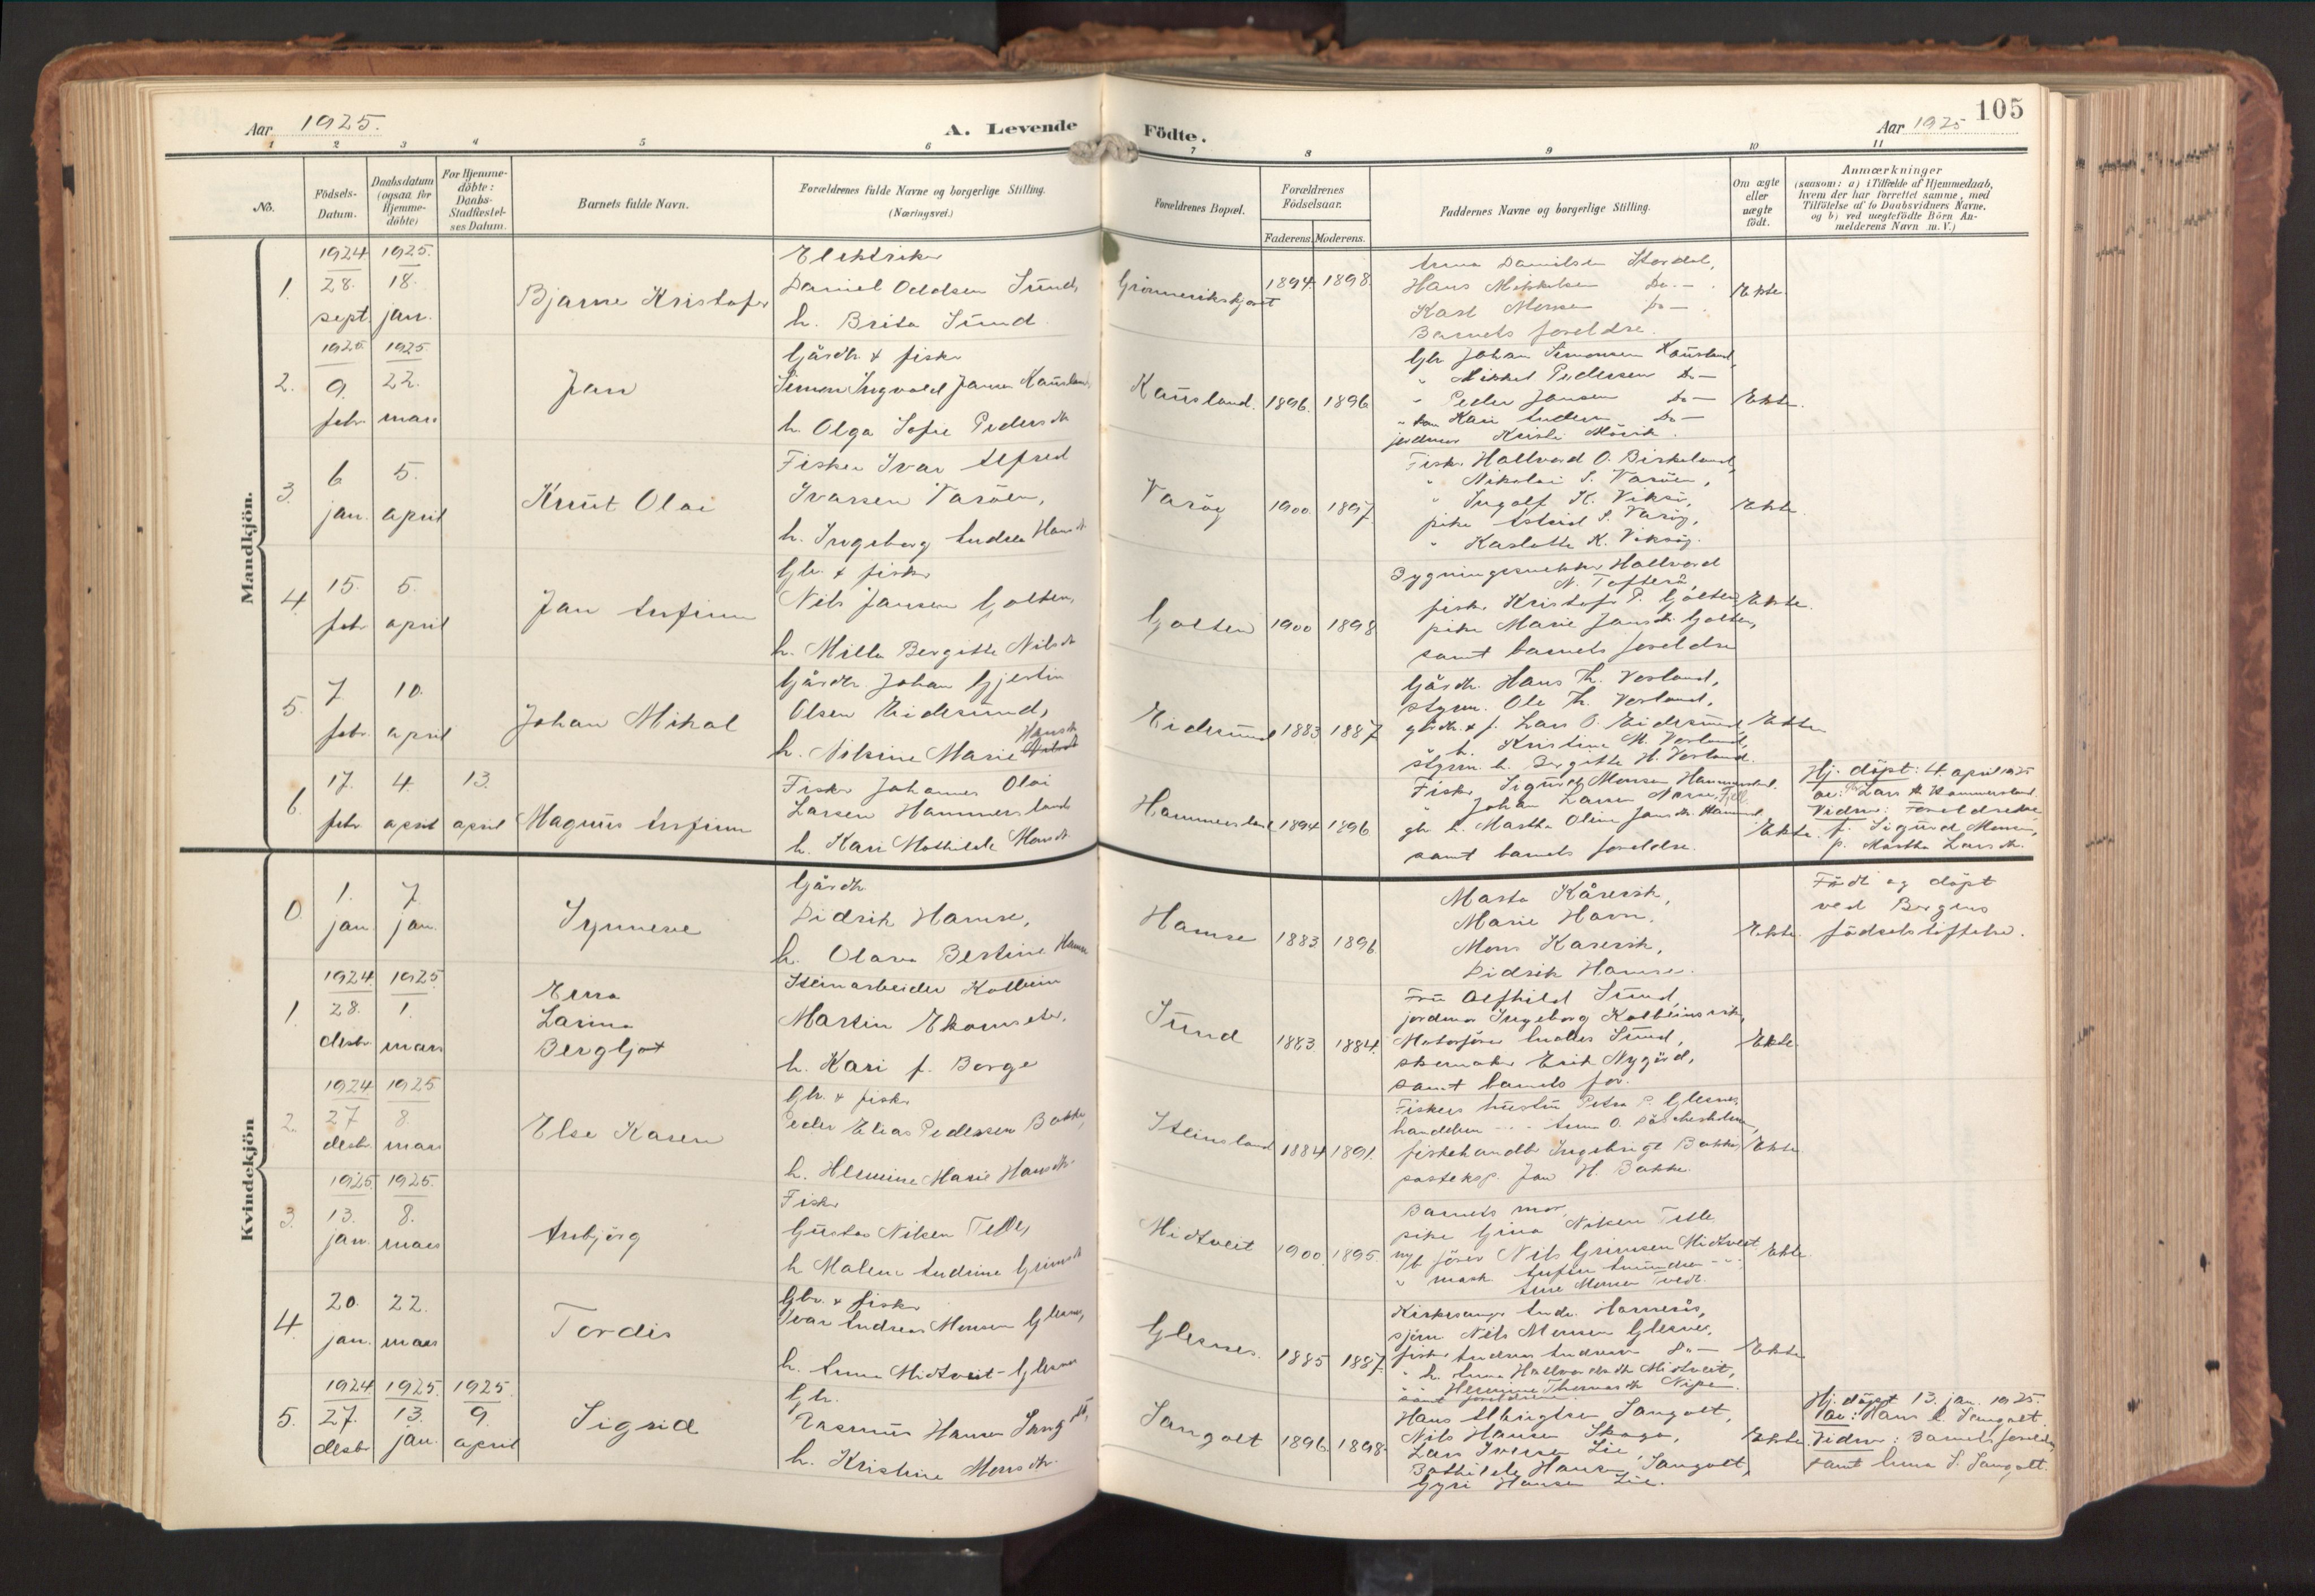 Aar 1925.
A. Levende
Födte.
Aar 1925
105
1 2 3 4 5 6 7 8 9 10 11
No.
Födsels-
Datum.
Daabsdatum
(ogsaa for
Hjemme-
döbte)
For Hjemme-
döbte:
Daabs-
Stadfæstel-
ses Datum.
Barnets fulde Navn.
Forældrenes fulde Navne og borgerlige Stilling.
(Næringsvei.)
Forældrenes Bopæl.
Forældrenes
Födselsaar.
Faderens. Moderens.
Faddernes Navne og borgerlige Stilling.
Om ægte
eller
uægte
födt.
Anmærkninger
(saasom: a) i Tilfælde af Hjemmedaab,
hvem der har forrettet samme, med
Tilföielse af to Daabsvidners Navne,
og b) ved uægtefödte Börn An-
melderens Navn m. V.)
Mandkjön.
1.
1924
28.
sept.
1925.
18.
jan.
Bjarne Kristofer
Elektriker
Daniel Oddsen Sund,
h. Brita Sund.
1894. 1898.
Anna Danielsen Stordal,
Hans Mikkelsen Do. -
Karl Monsen Do -
Barnets foreldre.
Ekte.
2.
1925
9.
febr.
1925
22.
mars
Jan
Gårdb. & fisker
Simon Ingvald Jansen Kausland,
h. Olga Sofie Pedersdtr
Kausland. 1896. 1896
Gbr Johan Simonsen Kausland,
" Mikkel Pedersen Do -
" Peder Jansen Do -
" kone Kari Do -
jordmor Kristi
Ekte.
3.
6
jan.
5.
april
Knut Olai
Fisker Ivar Alfred
Ivarsen Varöen,
h. Ingeborg Andrea Hansdtr
Varöy 1900. 1897.
Fisker Hallvard O. Birkeland,
" Nikolai S. Varöen,
" Ingolf K. Viksö,
pike Astrid S. Varöy,
" Kaslotte K. Viksöy.
Ekte.
4.
15.
febr
5.
april
Jan Arfinn
Gbr. & fisker
Nils Jansen Golten,
h. Milla Bergitte Nilsdtr
Golten 1900 1898
Bygningssnekker Hallvard
N. Tofterå,
fisker Kristofer P. Golten,
pike Marie Jansdtr. Golten,
samt barnets foreldre
Ekte.
5.
7
febr.
10.
april
Johan Mikal
Gårdb. Johan Gjertin
Olsen Eidesund,
Hansdtr
h. Nilsine Marie
Eidesund 1883 1887.
Gårdb. Hans Th. Vorland,
styrm. Ole Th. Vorland,
gårdb. & f. Lars O. Eidesund,
" h. Kristine M. Vorland,
styrm. h. Bergitte H. Vorland.
Ekte
6.
17.
febr
4.
april
13.
april
Magnus Arfinn
Fisker Johannes Olai
Larsen Hammersland
h. Kari Mathilde Monsdtr.
Hammersland 1894 1896
Fisker Sigurd Monsen Hammersland.
" Johan Larsen Fjell.
gbr. h. Martha Oline Jansdtr. Hammersl.
samt barnets foreldre.
Ekte.
Hj. döpt: 4. april 1925
av: Lars A. Hammersland.
Vidner: Foreldrene
f. Sigurd Monsen,
p. Martha Larsdtr.
Kvindekjön
0
1.
jan
7.
jan.
Synneve
Gårdb.
Didrik Hamre,
h. Olava Bertine Hamre
Hamre 1883 1896.
Marta Kårevik,
Marie Hamre,
Mons Karevik,
Didrik Hamre.
Ekte.
Födt og döpt
ved Bergens
födselsstiftelse.
1.
1924.
28.
desbr.
1925.
1.
mars
Erna
Larina
Bergljot
Steinarbeider Kolbein
Martin Ekornseter,
h. Kari f. Borge
Sund 1883 1884.
Fru Alfhild Sund,
jordmor Ingeborg Kolbeinsvik,
Motorförer Anders Sund,
skomaker Erik Nygård,
samt barnets for.
Ekte.
2.
1924.
27
desbr.
1925
8.
mars
Else Karen
Gbr. & fisker
Peder Elias Pedersen Bakke,
h. Hermine Marie Hansdtr.
Steinsland 1884 1891.
Fiskers hustru Petra P. Glesnes,
handelsm. - - Anna O.
fiskehandler Ingebrigt Bakke,
posteksp. Jan H. Bakke.
Ekte.
3.
1925.
13.
jan.
1925.
8.
mars
Anbjörg
Fisker
Gustav Nilsen Telle,
h Malene Andrine Grimsdtr
Midtveit 1900. 1895.
Barnets mor,
pike Gina Nilsen Telle,
m/b förer Nils Grimsen Midtveit
" mask.
Ane Monsen Tvedt.
Ekte.
4.
20.
jan.
22.
mars
Tordis
Gbr. & fisker
Ivar Andreas Monsen Glesnes,
h. Anna Midtveit-Glesnes
Glesnes. 1885 1887.
Kirkesanger Andr. Hammerås,
sjöm. Nils Monsen Glesnes,
fisker Andreas Andersen Do -
" h. Anna Hallvardsdtr Midtveit,
" " Hermine Thomasdtr Nipen.
samt foreldrene
Ekte
5.
1924
27.
desbr.
1925.
13.
jan.
1925.
9.
april
Sigrid
Gbr.
Rasmus Hansen Sangolt,
h. Kristine Monsdtr.
Sangolt 1896. 1898.
Hans Albrigtsen Sangolt,
Nils Hansen Skoge,
Lars Iversen Lie,
Bothilde Hansen Sangolt,
Gyri Hansen Lie.
Ekte.
Hj. döpt 13. jan. 1925.
av: Hans A. Sangolt.
Vidner: Barnets foreldre
samt Anna S. Sangolt.